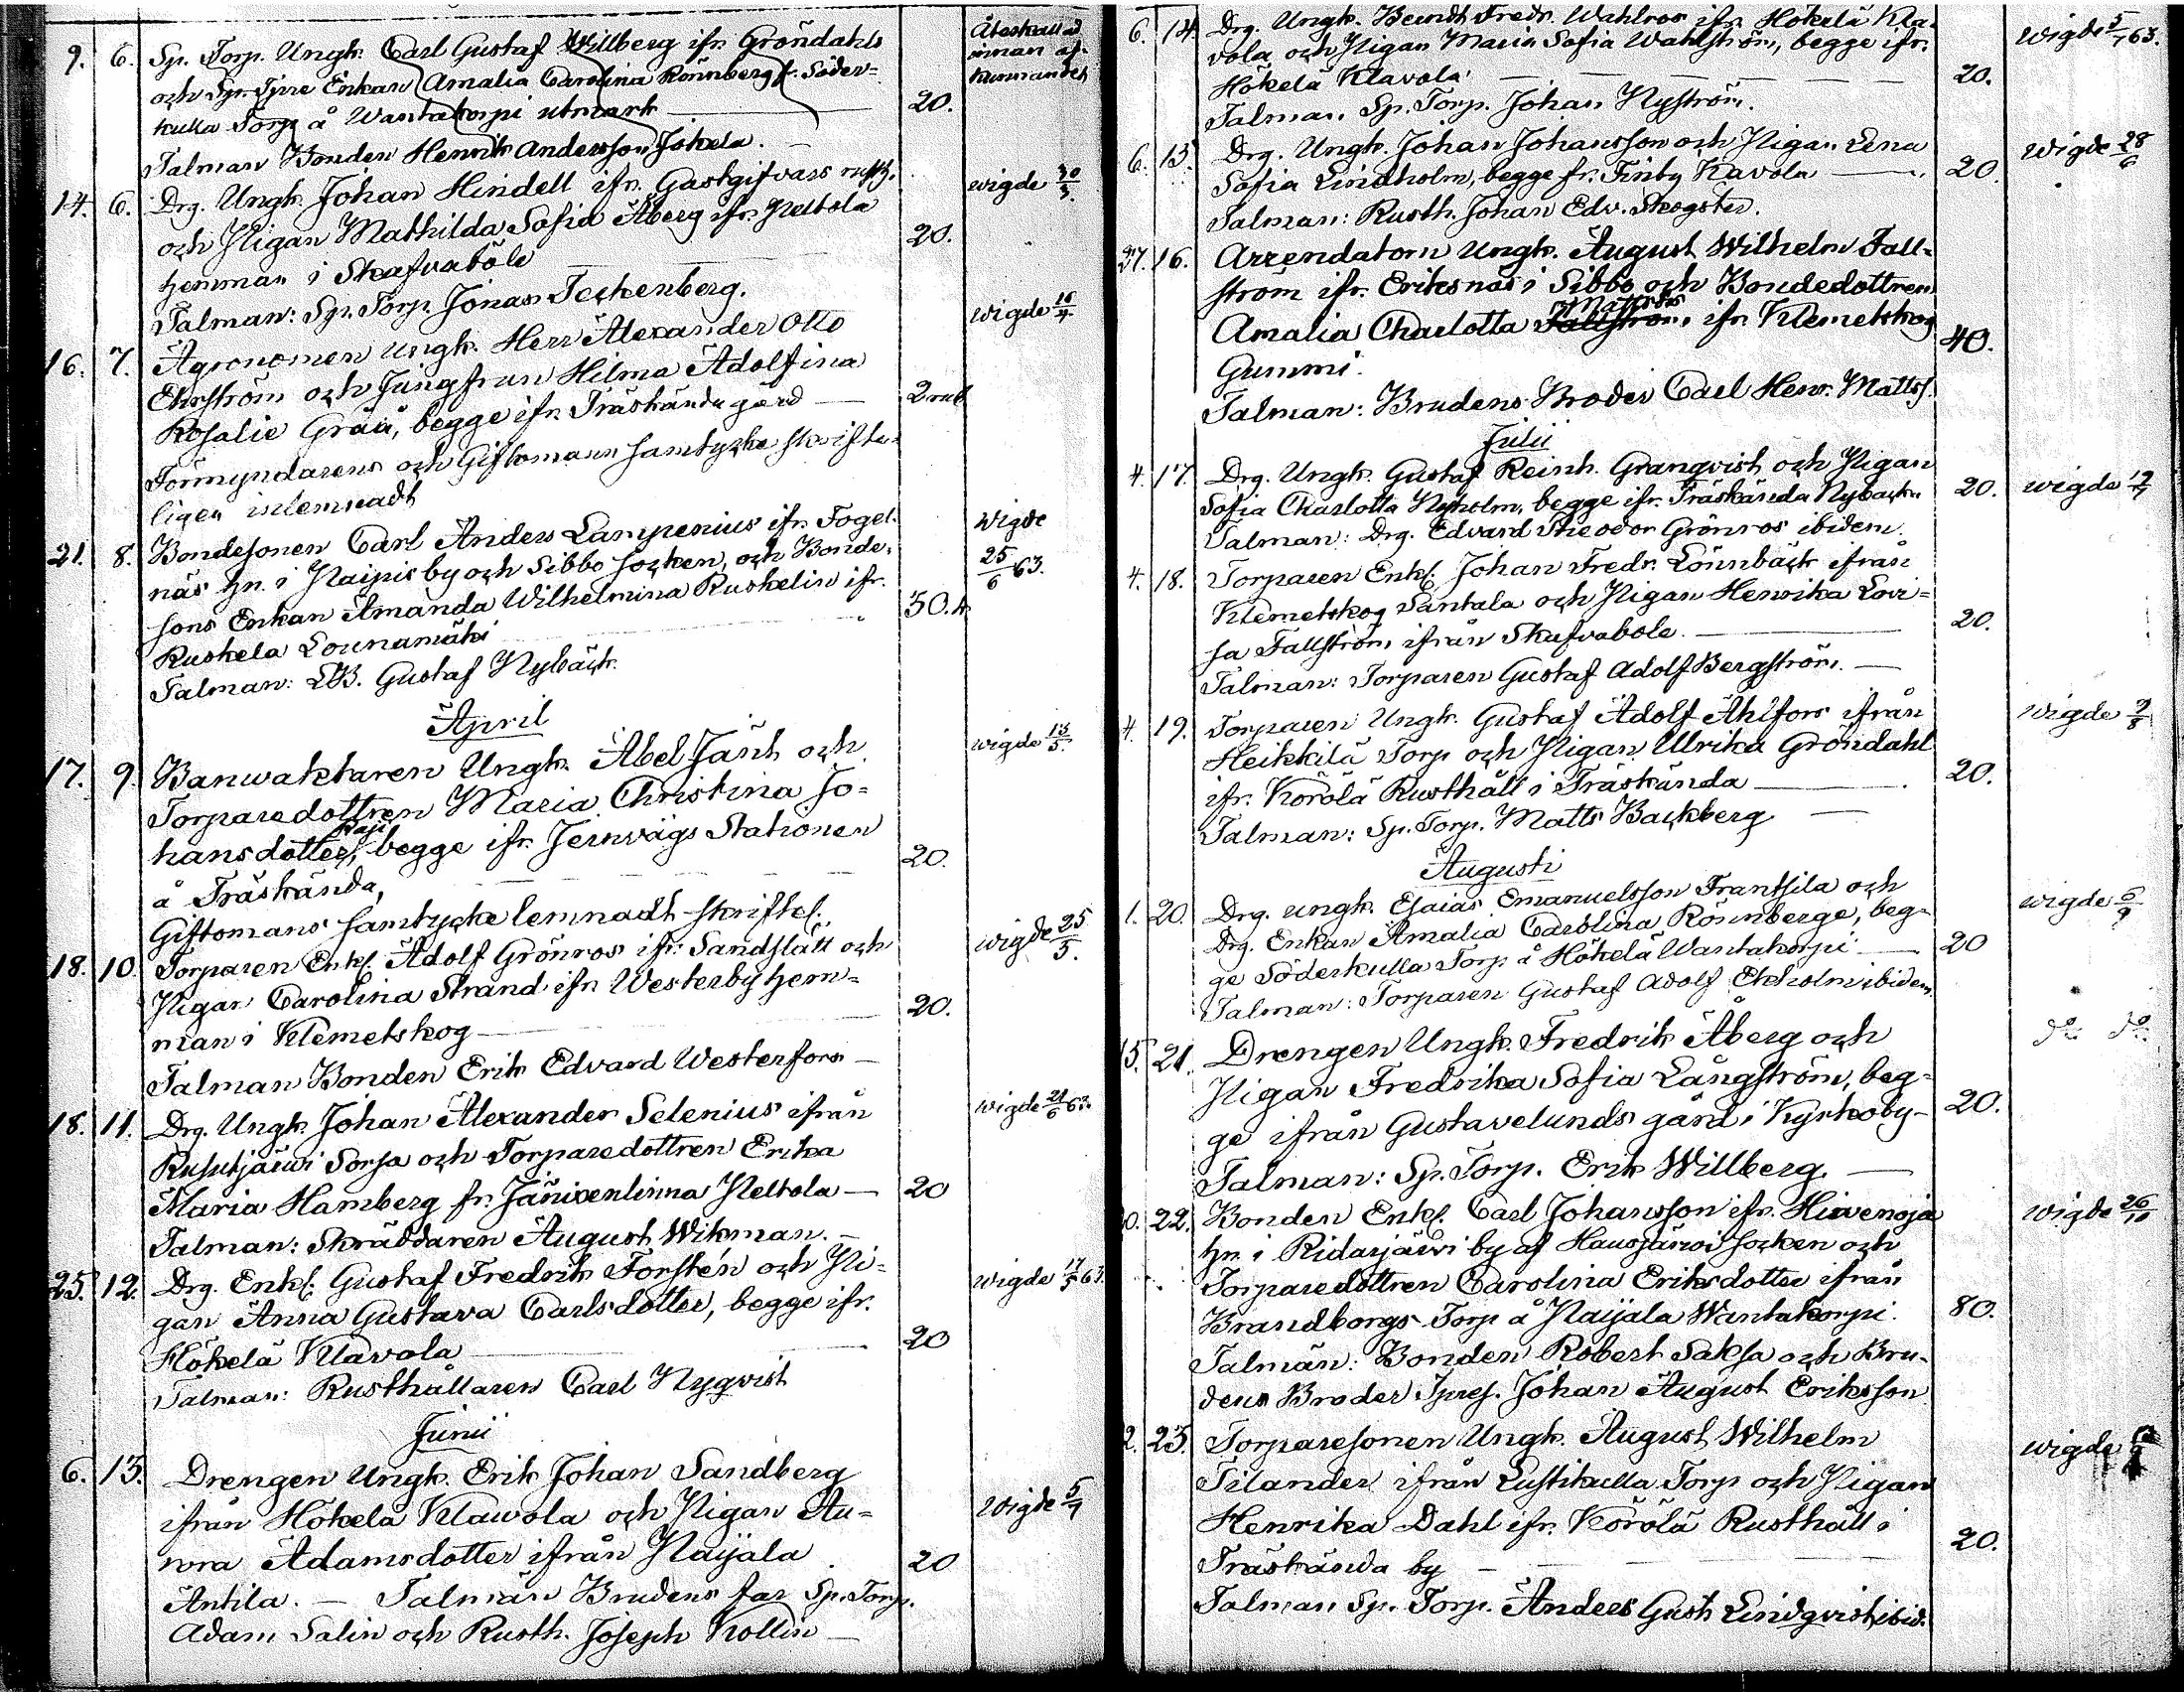 9. 6. Sp. Torp. Ungk. Carl Gustaf Willberg ifr. Gröndahls
och Sp. Tjrre Enkan Amalia Carolina Rönnberg fr. Söder=
kulla Torp å Wantakorpi utmark — 20.
Återkallad innan af- kunnandet
Talman Bonden Henrik Andersson Jokela.
14. 6. Drg. Ungk. Johan Hindell ifr. Gästgifvars rusth. wigde 30/3.
och Pigan Mathilda Sofia Åberg ifr. Peltola
hemman i Skafvaböle 20.
Talman: Sp. Torp. Jonas Teckenberg.
16. 7. Agronomen Ungk. Herr Alexander Otto wigde 16/4.
Ehrström och Jungfrun Hilma Adolfina
Rosalie Gråå, begge ifr. Träskända gård — 2 rub.
Förmyndarens och Giftomans samtycke skrifte=
ligen inlemnadt
21. 8. Bondesonen Carl Anders Lampenius ifr. Fogel= wigde 25/6 63.
näs hn. i Paipis by och Sibbo socken, och Bonde=
sons Enkan Amanda Wilhelmina Ruskelin ifr.
Ruskela Lounamäki 50.
Talman: LB. Gustaf Nybäck.
April
17. 9. Banwaktaren Ungk. Abel Jänt och wigde 13/5.
Torparedottren Maria Christina Jo=
Raji
hansdotter, begge ifr. Jernvägs Stationen 20.
å Träskända,
Giftomans samtycke lemnadt skriftel.
18. 10. Torparen Enkl. Adolf Grönros ifr. Sandslätt och wigde 25/5.
Pigan Carolina Strand ifr. Westerby hem=
man i Klemetskog — 20.
Talman Bonden Erik Edvard Westerfors —
18. 11. Drg. Ungk. Johan Alexander Selenius ifrån wigde 21/6 63.
Rusutjärwi Sorsa och Torparedottren Erika
Maria Hamberg fr. Jänixenlinna Peltola — 20
Talman: Skräddaren August Wikman. —
25. 12. Drg. Enkl. Gustaf Fredrik Forstén och Pi= wigde 17/5 63.
gan Anna Gustava Carlsdotter, begge ifr.
Hökelä Klavola 20
Talman: Rusthållaren Carl Nyqvist
Junii
6. 13. Drengen Ungk. Erik Johan Sandberg
ifrån Hökelä Klawola och Pigan Au= wigde 5/7
rora Adamsdotter ifrån Paijala 20
Antila. — Talmän Brudens far Sp. Torp.
Adam Salin och Rusth. Joseph Kollin —
6. 14. Drg. Ungk. Berndt Fredr. Wahlroos ifr. Hökelä Kla= wigde 5/7 63.
vola och Pigan Maria Sofia Wahlström, begge ifr.
Hökelä Klavola — 20.
Talman. Sp. Torp. Johan Nyström.
6. 15. Drg. Ungk. Johan Johansson och Pigan Lena wigde 28/6
Sofia Lindholm, begge fr. Finby Kavola — 20.
Talman: Rusth. Johan Edv. Skogster.
27. 16. Arrendatorn Ungk. August Wilhelm Fall=
ström ifr. Eriksnäs i Sibbo och Bondedottren
Mattsdr
Amalia Charlotta Fallström ifr. Klemetskog 40.
Gummi.
Talman: Brudens Broder Carl Henr. Mattss.
Julii
4. 17. Drg. Ungk. Gustaf Reinh. Granqvist och Pigan
Sofia Charlotta Nyholm, begge ifr. Träskända Nybacka 20. wigde 19/7
Talman: Drg. Edvard Theodor Grönros ibidem.
4. 18. Torparen Enkl. Johan Fredr. Lönnbäck ifrån
Klemetskog Santala och Pigan Henrika Lovi=
sa Fallström ifrån Skafvaböle. — 20.
Talman: Torparen Gustaf Adolf Bergström. —
4. 19. Torparen Ungk. Gustaf Adolf Ahlfors ifrån wigde 9/8
Heikkilä Torp och Pigan Ulrika Gröndahl
ifr. Körölä Rusthåll i Träskända — 20.
Talman: Sp. Torp. Matts Backberg —
Augusti
1. 20. Drg. Ungk. Esaias Emanuelsson Frantsila och wigde 6/9
Drg. Enkan Amalia Carolina Rönnberge, beg=
ge Söderkulla Torp å Hökelä Wantakorpi — 20
Talman: Torparen Gustaf Adolf Ekholm ibidem.
15. 21. Drengen Ungk. Fredrik Åberg och do do
Pigan Fredrika Sofia Långström, beg=
ge ifrån Gustavelunds gård i Kyrkoby — 20.
Talman: Sp. Torp. Erik Willberg. —
22. Bonden Enkl. Carl Johansson ifr. Hirvenoja wigde 26/10
hn. i Ridasjärwi by af Hausjärwi socken och
Torparedottren Carolina Eriksdotter ifrån
Brandborgs Torp å Paijala Wantakorpi. 80.
Talmän: Bonden Robert Saksa och Bru=
dens Broder Johan August Eriksson
23. Torparesonen Ungk. August Wilhelm wigde
Tilander ifrån Lustikulla Torp och Pigan
Henrika Dahl ifr. Körölä Rusthåll i
Träskända by — 20.
Talman Sp. Torp. Anders Gust. Lindqvist, ibid.